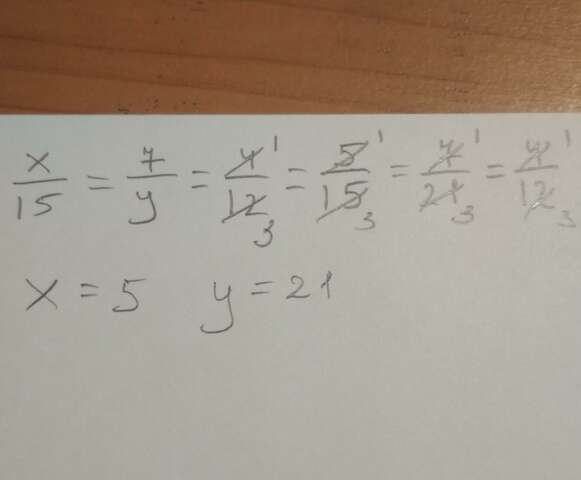 x/15 = 7/y = 4̸ 1/1̸2̸ 3 = 5̸ 1/1̸5̸ 3 = 7̸ 1/2̸1̸ 3 = 4̸ 1/1̸2̸ 3
x = 5 y = 21